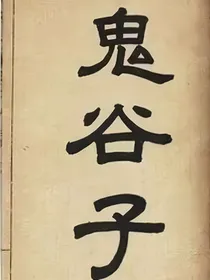 鬼谷子